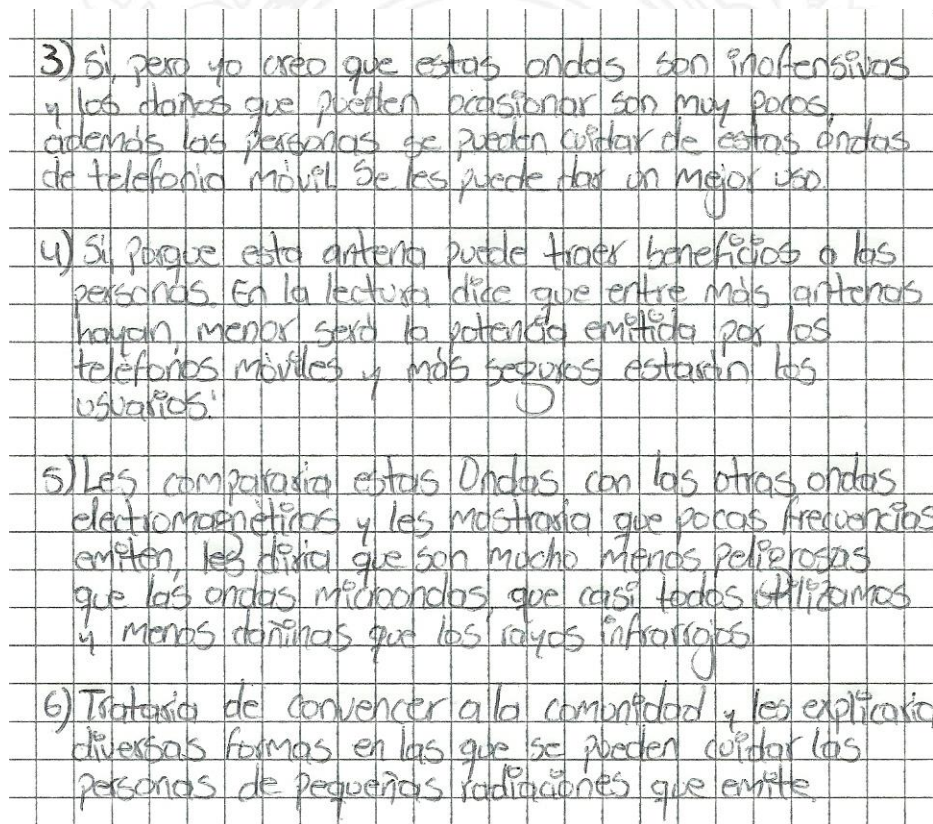 3) Si, pero yo creo que estas ondas son inofensivas
y los daños que pueden ocasionar son muy pocos,
además las personas se pueden cuidar de estas ondas
de telefonia móvil Se les puede dar un mejor uso.
4) Si, Porque esta antena puede traer beneficios a las
personas. En la lectura dice que entre más antenas
hayan, menor será la potencia emitida por los
teléfonos móviles y más seguros estarán los
usuarios.
5) Les compararia estas Ondas con las otras ondas
electromagnéticas y les mostraria que pocas frecuencias
emiten, les diria que son mucho menos peligrosas
que las ondas microondas que casi todos utilizamos
y menos dañinas que los rayos infrarrojos
6) Trataria de convencer a la comunidad y les explicaria
diversas formas en las que se pueden cuidar las
personas de pequeñas radiaciones que emite